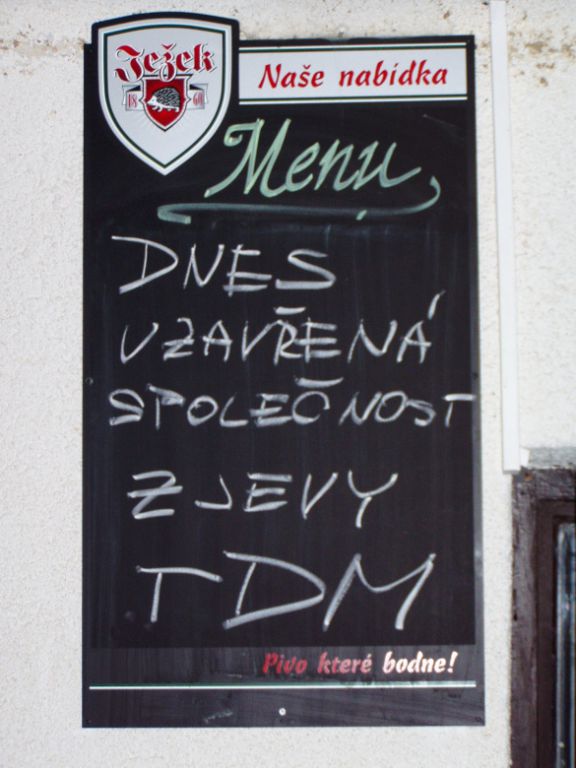 Ježek
18 60
Naše nabídka
Menu
DNES
UZAVŘENÁ
SPOLEČNOST
ZJEVY
TDM
Pivo které bodne!